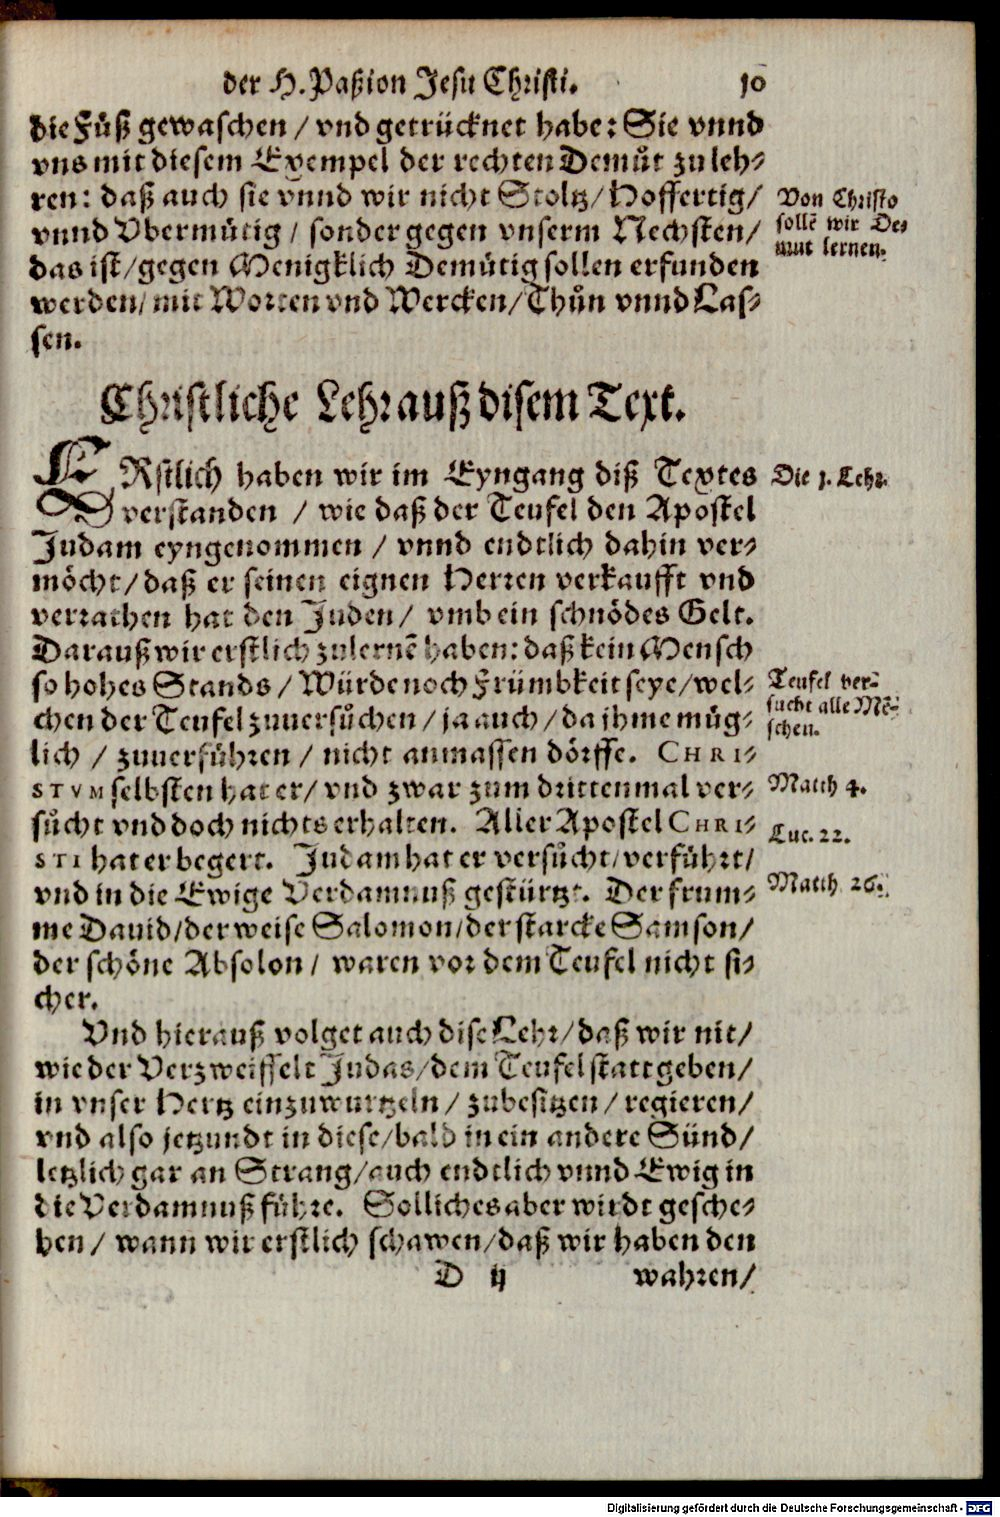 der H. Paßion Jesu Christi. 10
die Fůß gewaschen / vnd getrücknet habe: Sie vnnd
vns mit diesem Exempel der rechten Demůt zu leh-
ren: daß auch sie vnnd wir nicht Stoltz / Hoffertig /
vnnd Vbermůtig / sonder gegen vnserm Nechsten /
das ist / gegen Menigklich Demůtig sollen erfunden
werden / mit Worten vnd Wercken / Thůn vnnd Las-
sen.
Von Christo
sollẽ wir De-
mut lernen.
Christliche Lehr auß disem Text.
ERstlich haben wir im Eyngang diß Textes
verstanden / wie daß der Teufel den Apostel
Judam eyngenommen / vnnd endtlich dahin ver-
möcht / daß er seinen eignen Herren verkaufft vnd
verrathen hat den Juden / vmb ein schnödes Gelt.
Darauß wir erstlich zulernẽ haben: daß kein Mensch
so hohes Stands / Würde noch Frümbkeit seye / wel-
chen der Teufel zuuersůchen / ja auch / da jhme müg-
lich / zuuerführen / nicht anmassen dörffe. CHRI-
STVM selbsten hat er / vnd zwar zum drittenmal ver-
sůcht vnd doch nichts erhalten. Aller Apostel CHRI-
STI hat er begert. Judam hat er versůcht / verführt /
vnd in die Ewige Verdamnuß gestürtzt. Der from-
me Dauid / der weise Salomon / der starcke Samson /
der schöne Absolon / waren vor dem Teufel nicht si-
cher.
Die 1. Lehr.
Teufel ver-
sucht alle Mẽ-
schen.
Matth 4.
Luc. 22.
Matth 26.
Vnd hierauß volget auch dise Lehr / daß wir nit /
wie der Verzweiffelt Judas / dem Teufel statt geben /
in vnser Hertz einzuwurtzeln / zubesitzen / regieren /
vnd also jetzundt in diese / bald in ein andere Sünd /
letzlich gar an Strang / auch endtlich vnnd Ewig in
die Verdamnuß führe. Solliches aber wirdt gesche-
hen / wann wir erstlich schawen / daß wir haben den
D ij wahren /
Digitalisierung gefördert durch die Deutsche Forschungsgemeinschaft - DFG